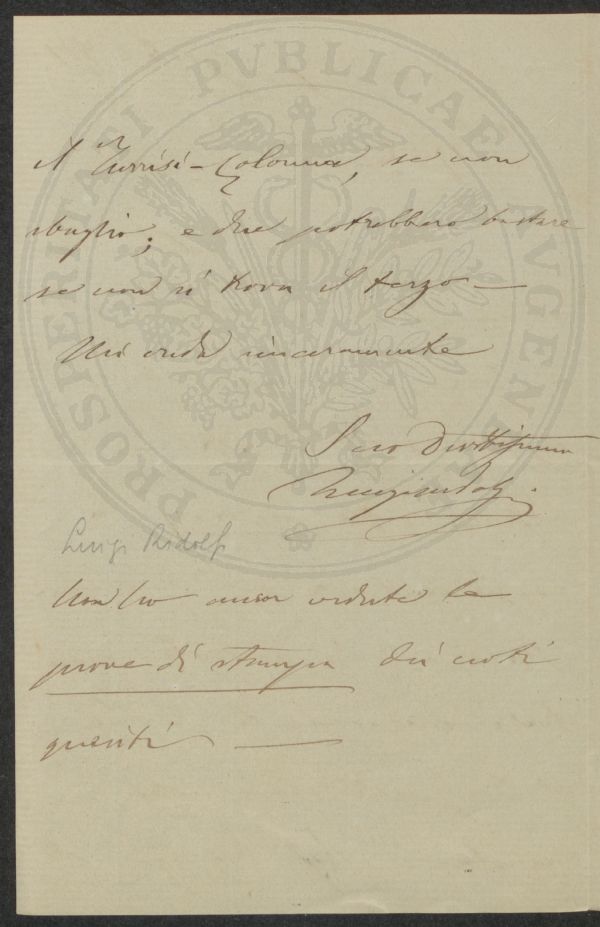 PROSPERITATI PVBLICAE AVGENDAE
il Turrisi-Colonna, se non
sbaglio; e due potrebbero bastare
se non si trova il terzo —
Mi creda sinceramente
Suo Devotissimo
Luigi Ridolfi
Luigi Ridolfi
Non ho ancor vedute le
prove di stampa dei noti
quesiti —